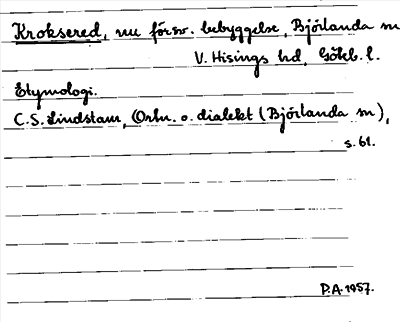 Kroksered, nu försv. bebyggelse, Björlanda sn
V. Hisings hd, Göteb. l.
Etymologi.
C.S. Lindstam, Ortn. o. dialekt (Björlanda sn),
s. 61.
P.A. 1957.